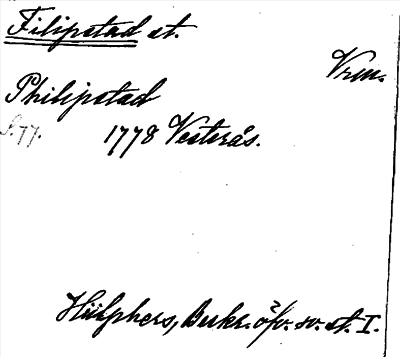 Filipstad st.
Vrm.
Philipstad
S. 77. 1778 Vesterås.
Hülphers, Beskr. öfv. sv. st. I.